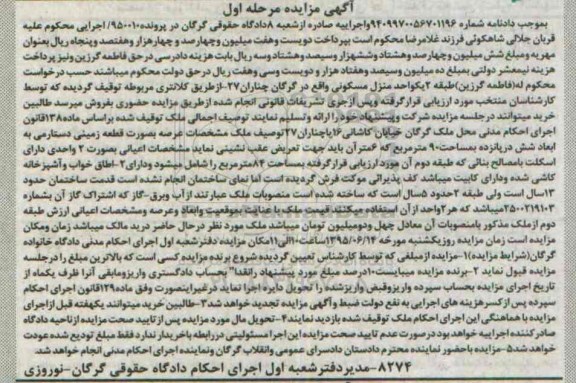 آگهی مزایده مرحله اول
بموجب دادنامه شماره ۹۴۰۹۹۷۰۰۵۶۷۰۱۱۹۶ واجرائیه صادره ازشعبه ۸دادگاه حقوقی گرگان در پرونده ۹۵۰۰۱۰/ اجرایی محکوم علیه
قربان جلالی شاهکوئی فرزند غلامرضا محکوم است بپرداخت دویست وهفت میلیون وچهارصد و چهارهزار وهفتصد وپنجاه ریال بعنوان
مهریه ومبلغ شش میلیون وچهارصد وهشتاد وششهزار وسیصد وهشتاد وسه ریال بابت هزینه دادرسی در حق فاطمه گرزین ونیز پرداخت
هزینه نیمعشر دولتی بمبلغ ده میلیون وسیصد وهفتاد هزار و دویست وسی وهفت ریال درحق دولت محکوم میباشند حسب درخواست
محکوم له(فاطمه گرزین)طبقه ۲یکواحد منزل مسکونی واقع در گرگان چناران۲۷-ازطریق کلانتری مربوطه توقیف گردیده که توسط
کارشناسان منتخب مورد ارزیابی قرارگرفته وپس ازجری تشریفات قانونی انجام شده ازطریق مزایده حضوری بفروش میرسد طالبین
خرید میتوانند درجلسه مزایده شرکت وپیشنهاد خود را ارائه وتسلیم نمایند توصیف اجمالی ملک توقیف شده براساس ماده۱۳۸قانون
اجرای احکام مدنی محل ملک گرگان خیابان کاشانی ۱۶یاچناران۲۷توصیف ملک مشخصات عرصه بصورت قطعه زمینی دستارمی به
ابعاد شش درپانزده بمساحت۹۰ مترمربع که ۶متر آن باید جهت تعریض عقب نشینی نماید مشخصات اعیانی بصورت ۲ واحدی دارای
اسکلت بامصالح بنائی که طبقه دوم آن مورد ارزیابی قرارگرفته بمساحت ۸۴مترمربع را شامل میشود ودارای۲-اطاق خواب وآشپزخانه
کاشی شده ودارای کابینت میباشد کف پذیرائی موکت فرش گردیده است اما نمای ساختمان انجام نشده است قدمت ساختمان حدود
۱۳سال است ولی طبقه ۲حدود ۵سال است که ساخته شده است منصوبات ملک عبارتند از آب وبرق-گاز که اشتراک گاز آن بشماره
۲۵۰۰۲۱۹۱۰۳میباشد که هر۲واحد از آن استفاده میکنند قیمت ملک با عنایت بموقعیت وابعاد وعرصه ومشخصات اعیانی ارزش طبقه
دوم ازملک مذکور بامنصوبات آن معادل چهل ودومیلیون تومان میباشد ملک مورد نظر درحال حاضر درید مالک میباشد زمان ومکان
مزایده است زمان مزایده روزیکشنبه مورخه ۱۳۹۵/۰۶/۱۴ساعت۱۰الی۱۱مکان مزایده دفترشعبه اول اجرای احکام مدنی دادگاه خانواده
گرگان(شرایط مزایده)۱-مزایده ازمبلغی که توسط کارشناس تعیین گردیده شروع برنده مزایده کسی است که بالاترین مبلغ را درجلسه
مزایده قبول نماید ۲-برنده مزایده میبایست۱۰درصد مبلغ مورد پیشنهاد رانقدا" بحساب دادگستری واریزومابقی آنرا ظرف یکماه از
تاریخ اجرای مزایده بحساب سپرده واریزوقبض واریزشده را تحویل دایره اجرا نماید درغیراینصورت وفق ماده۱۲۹قانون اجرای احکام
سپرده پس از کسر هزینه های اجرایی به نفع دولت ضبط وآگهی مزایده تجدید خواهد شد۳-طالبین خرید میتوانند یکهفته قبل ازاجرای
مزایده با هماهنگی این اجرای احکام ملک توقیف شده بازدید نمایند۴-تحویل مال مورد مزایده پس از تایید صحت مزایده ازناحیه دادگاه
صادرکننده اجراییه خواهد بود در صورت عدم تایید صحت مزایده این اجرا مسئولیتی دررابطه باخریدار ندارد فقط مبلغ تودیع شده عودت
خواهد شد۵-مزایده باحضور نماینده محترم دادستان دادسرای عمومی وانقلاب گرگان ونماینده اجرای احکام مدنی انجام خواهد شد.
۸۲۷۴-مدیردفترشعبه اول اجرای احکام دادگاه حقوقی گرگان-نوروزی